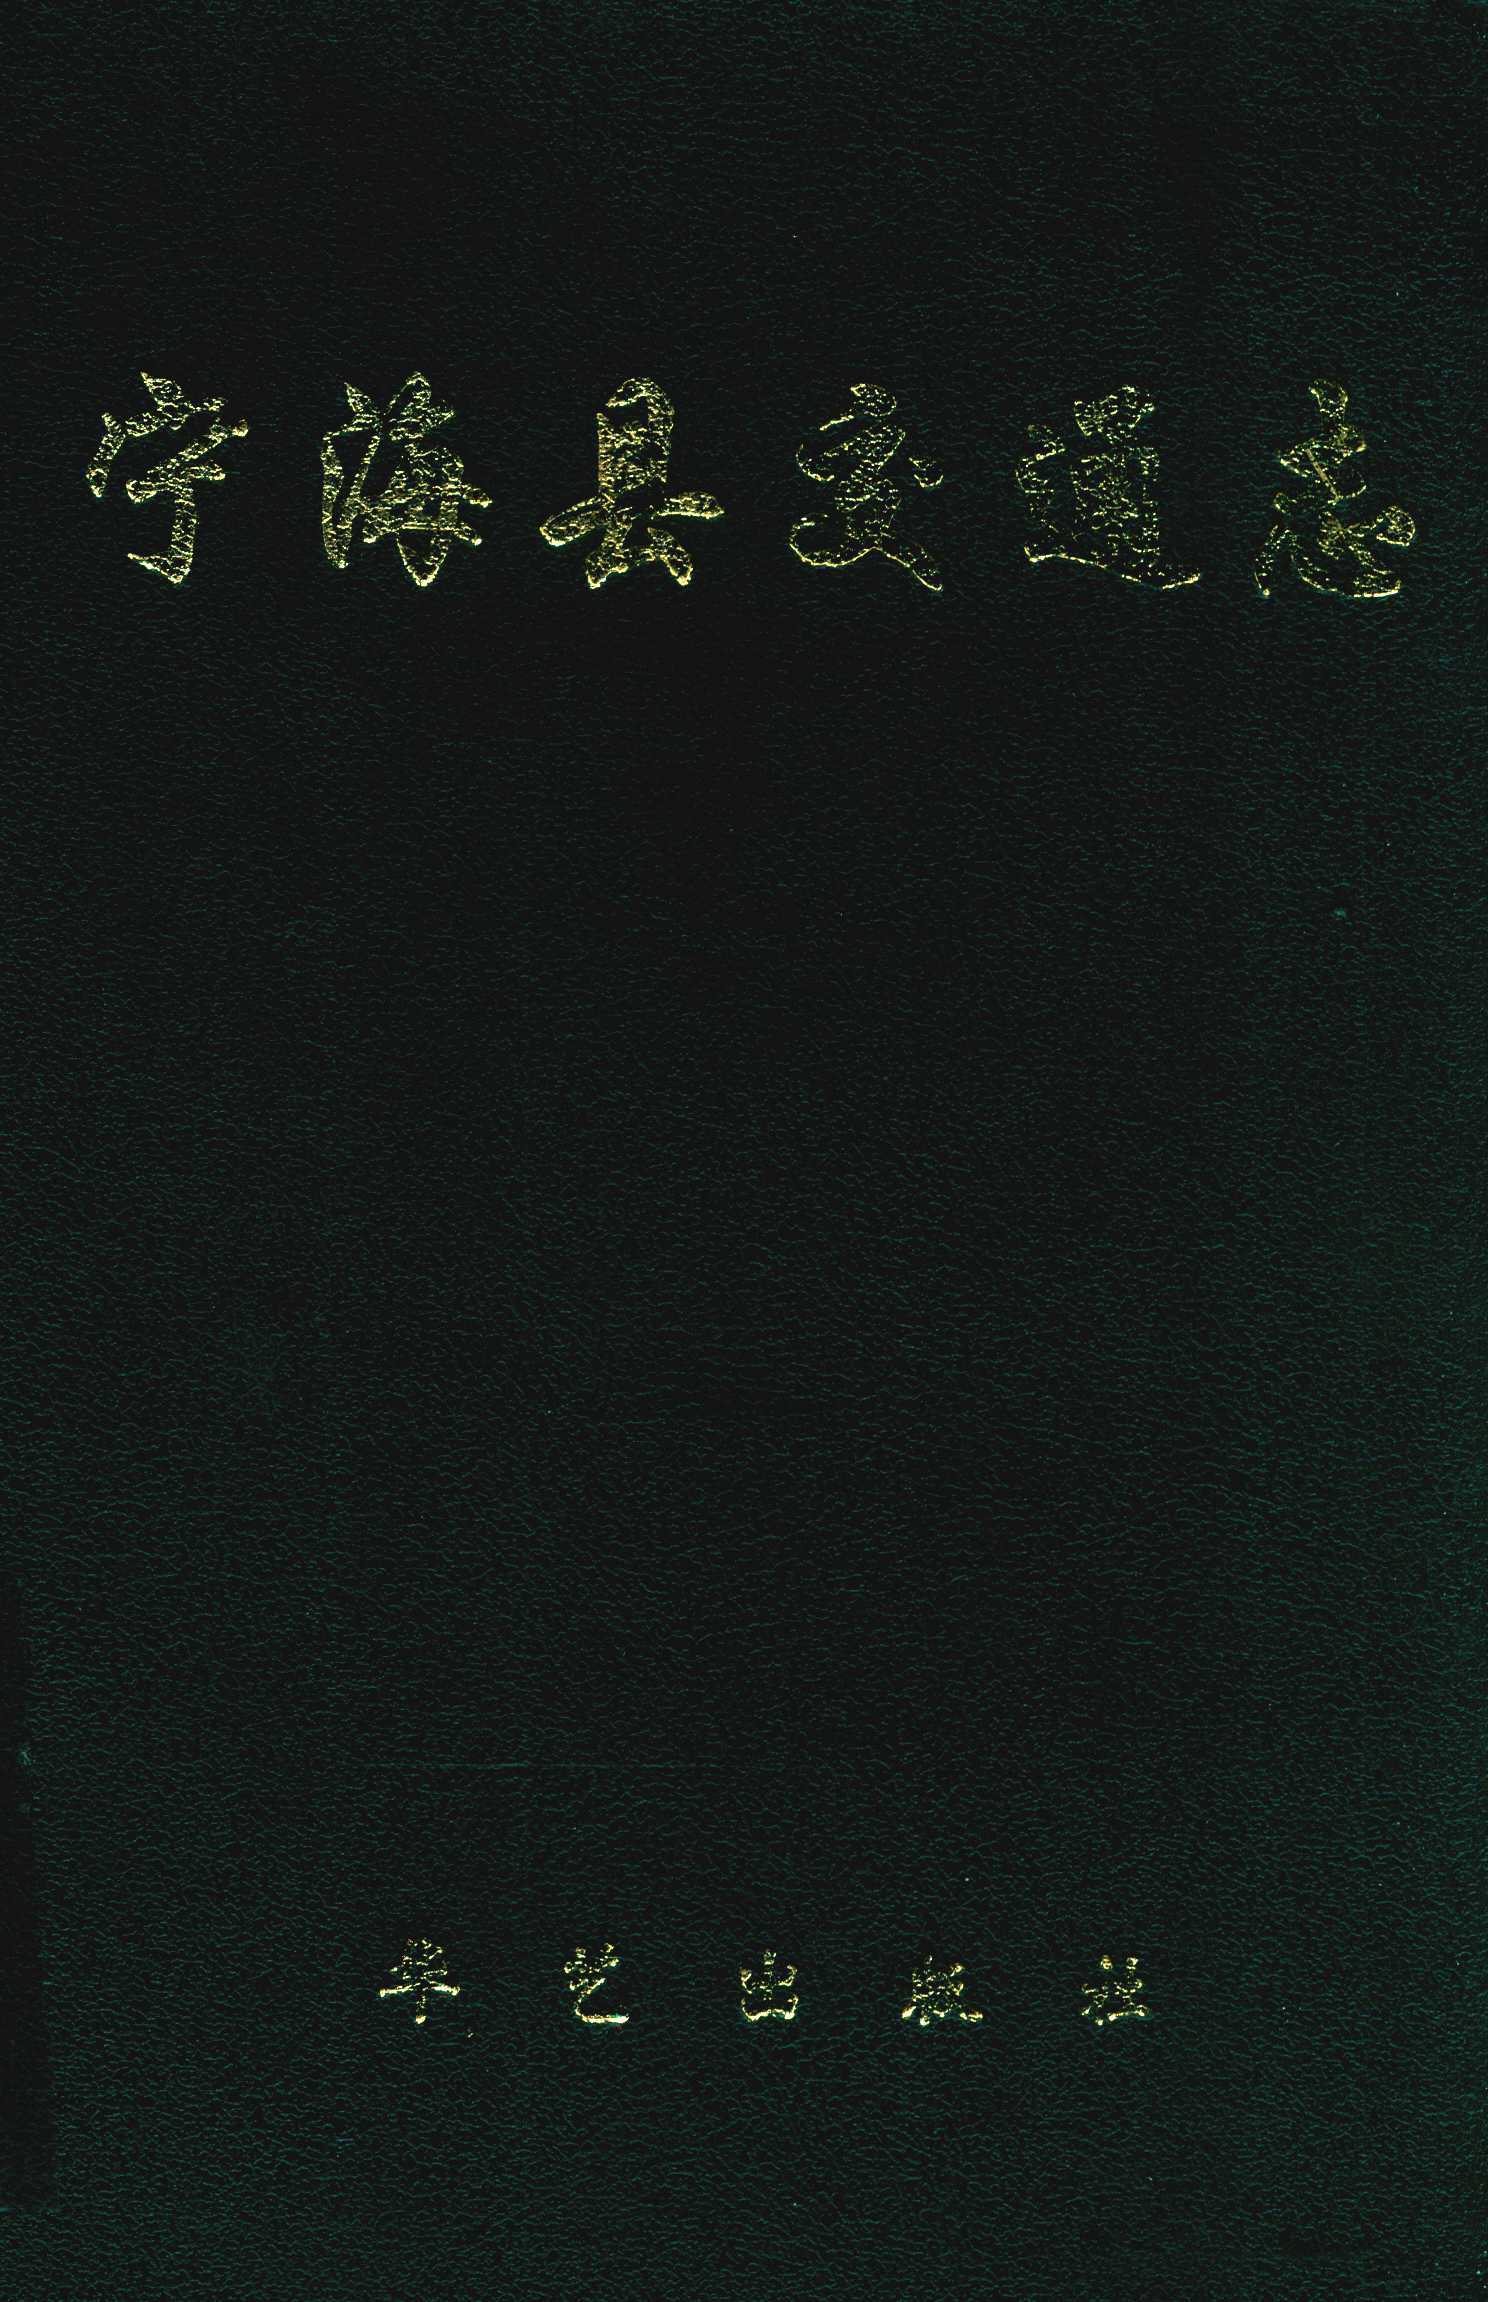 宁海县交通志
华艺出版社